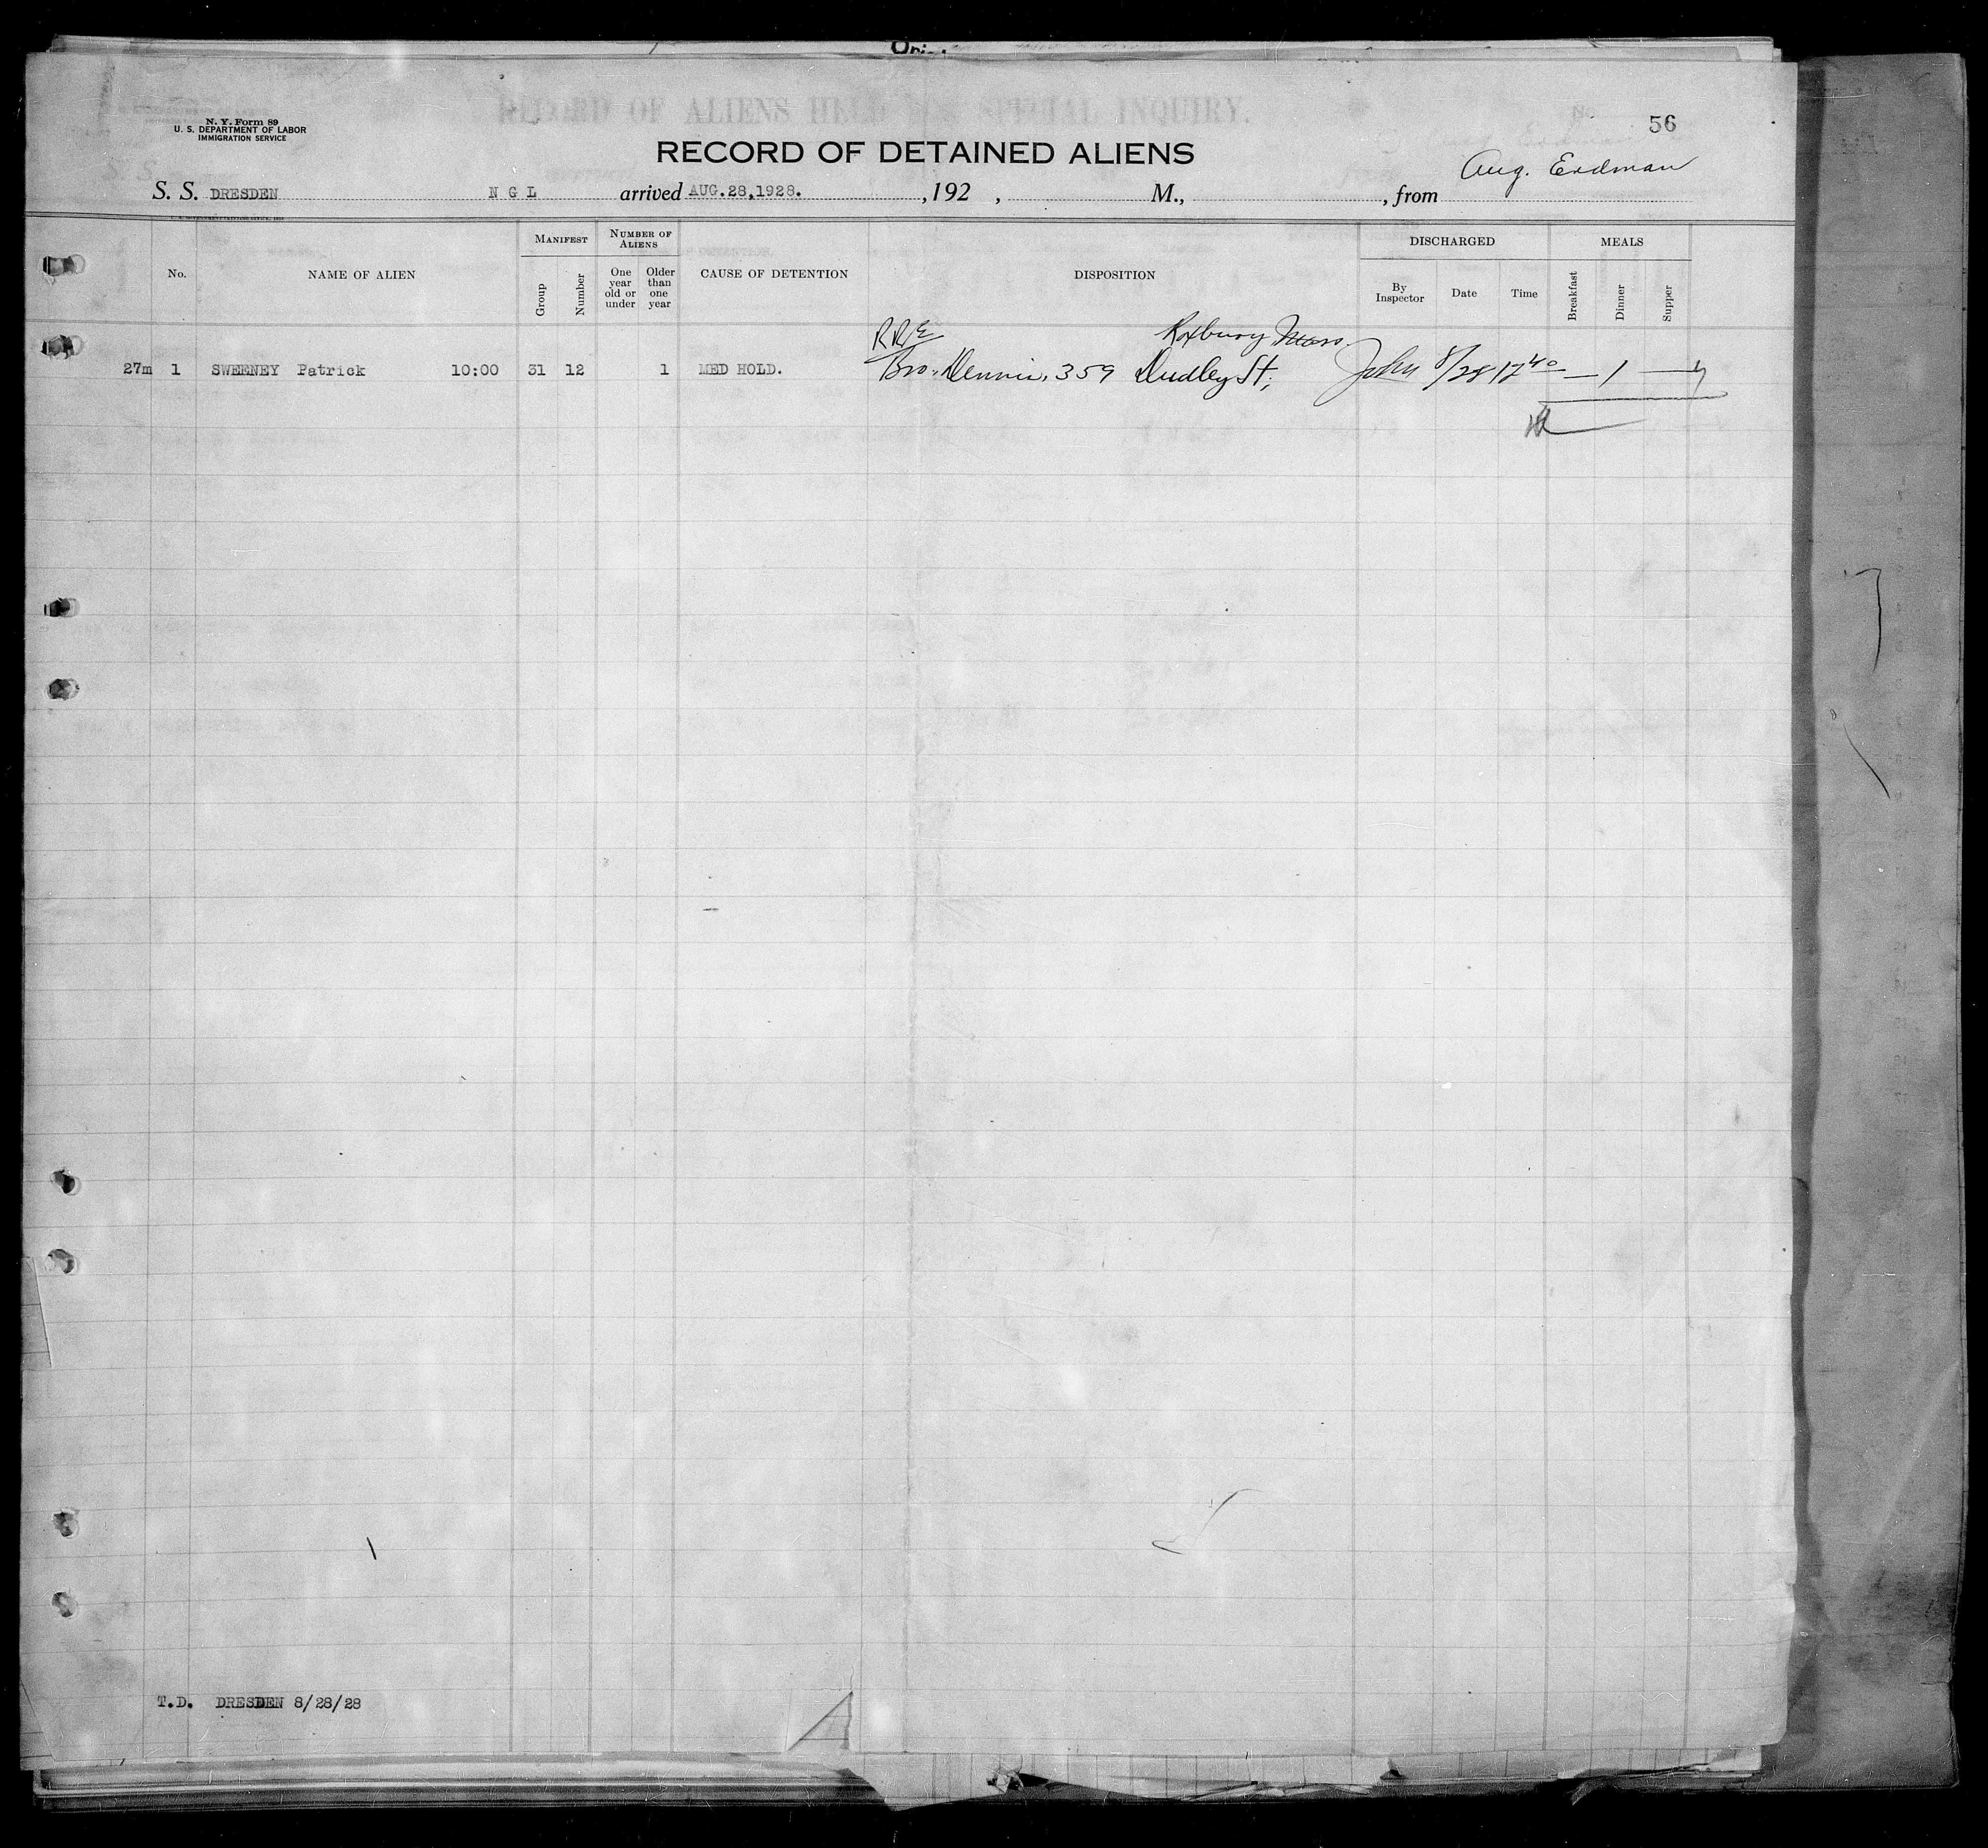 N. Y. Form 89
U. S. DEPARTMENT OF LABOR
IMMIGRATION SERVICE
RECORD OF ALIENS HELD FOR SPECIAL INQUIRY.
56
RECORD OF DETAINED ALIENS
Aug. Erdman
S. S. DRESDEN N G L arrived AUG.28,1928. ,192 , M., , from
MANIFEST NUMBER OF ALIENS DISCHARGED MEALS
No. NAME OF ALIEN Group Number One year old or under Older than one year CAUSE OF DETENTION DISPOSITION By Inspector Date Time Breakfast Dinner Supper
RRE Roxbury Mass.
27m 1 SWEENEY Patrick 10:00 31 12 1 MED HOLD. Bro. Dennis, 359 Dudley St, 8/28 12 40 — 1 —
T.D. DRESDEN 8/28/28